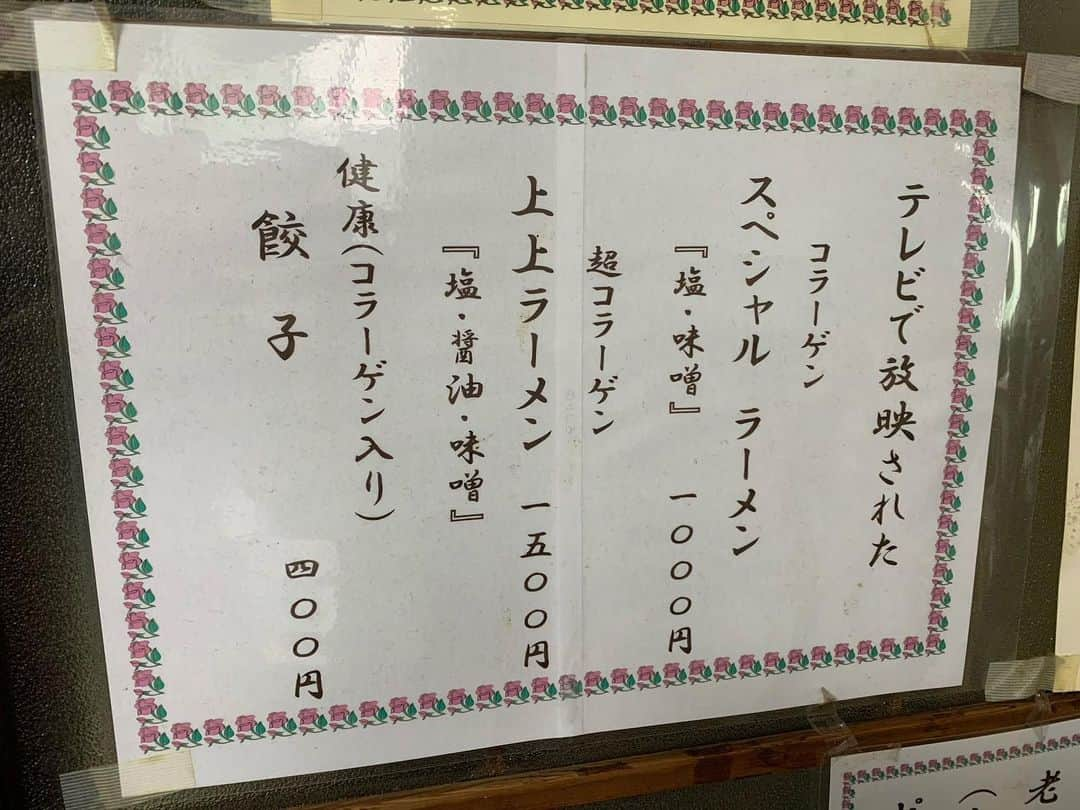 テレビで放映された
コラーゲン
スペシャル ラーメン
『塩・味噌』 一〇〇〇円
超コラーゲン
上上ラーメン 一五〇〇円
『塩・醤油・味噌』
健康(コラーゲン入り)
餃子 四〇〇円
老